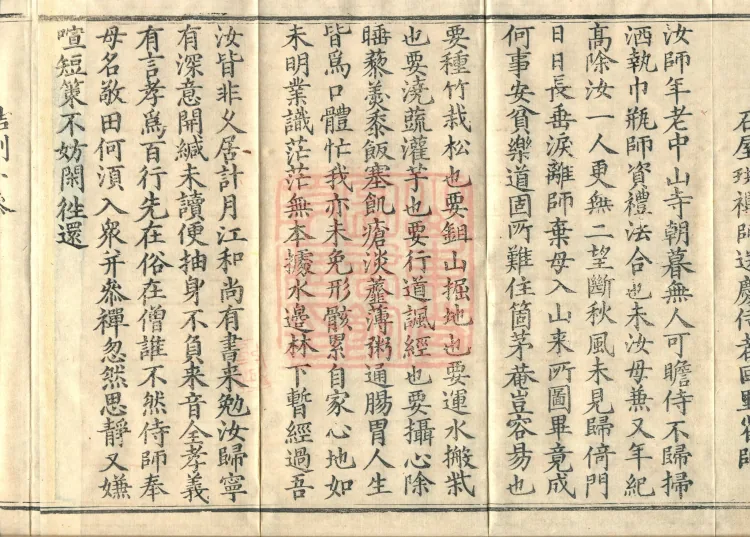 石屋珙禪師送慶侍者回里省師
汝師年老中山寺朝暮無人可瞻侍不歸掃
洒執巾瓶師資禮法合也未汝母兼又年紀
髙除汝一人更無二望斷秋風未見歸倚門
日日長垂淚離師棄母入山来所圖畢竟成
何事安貧樂道固所難住箇茅菴豈容易也
要種竹栽松也要鉏山掘地也要運水搬柴
也要澆蔬灌芋也要行道諷經也要攝心除
睡藜羮黍飯塞飢瘡淡虀薄粥通腸胃人生
皆爲口體忙我亦未免形骸累自家心地如
未明業識茫茫無本據水邊林下暫經過吾
汝皆非乆居計月江和尚有書来勉汝歸寧
有深意開緘未讀便抽身不負来音全孝義
有言孝爲百行先在俗在僧誰不然侍師奉
母名敬田何湏入衆并叅禪忽然思靜又嫌
喧短策不妨閑徃還